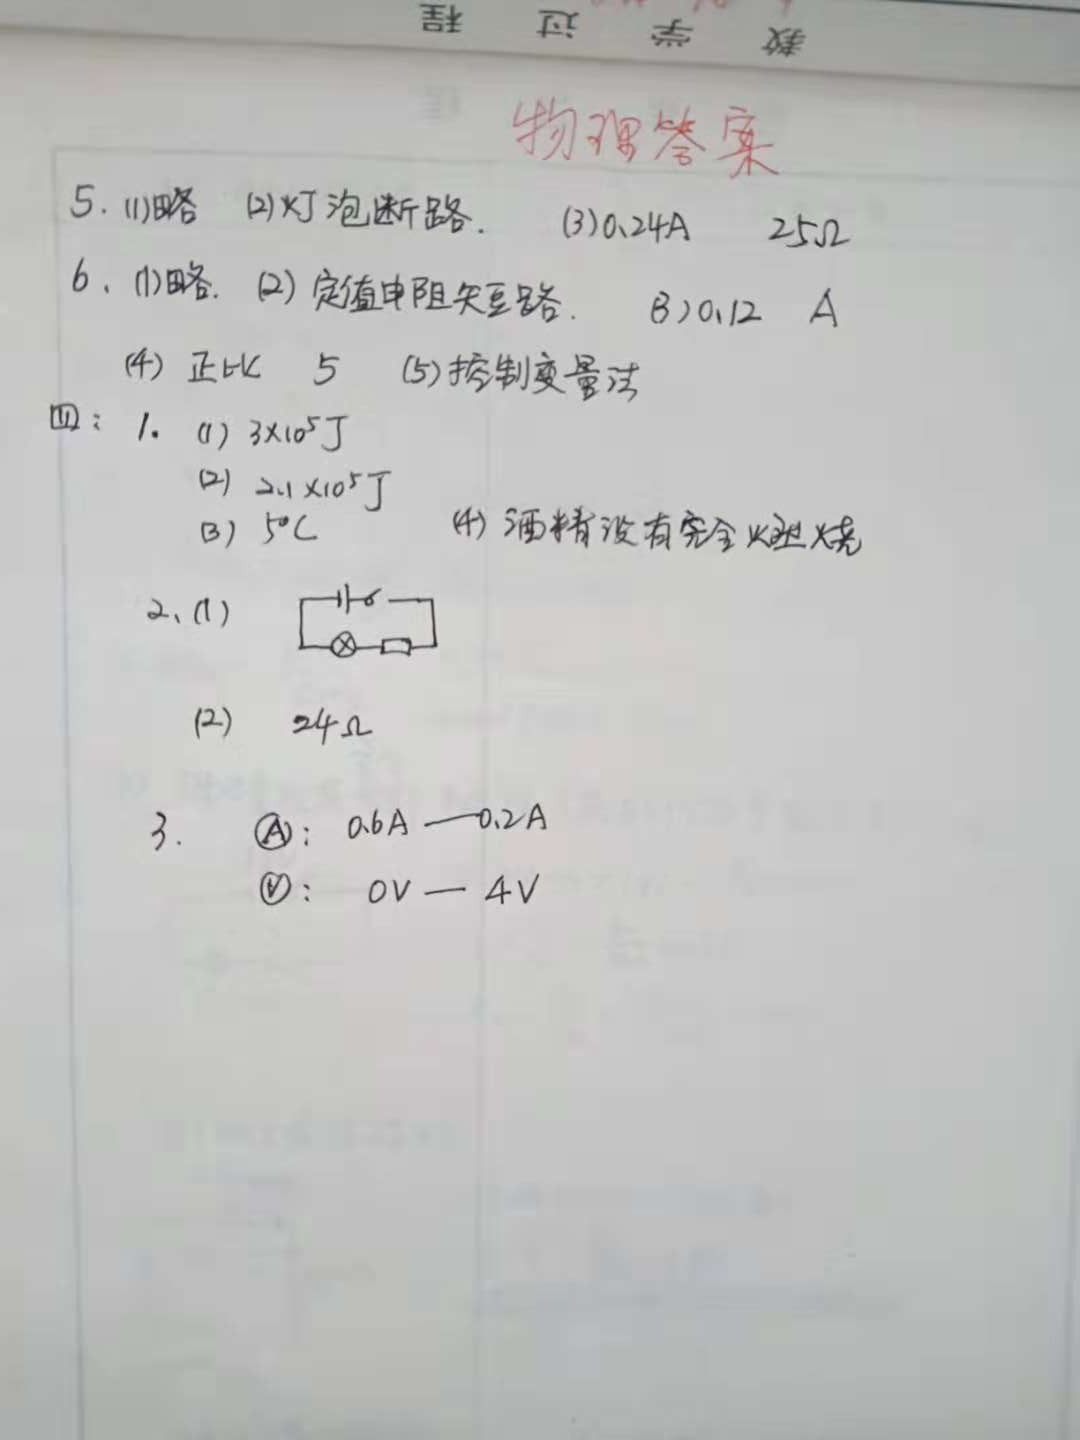 教学过程
物理答案
5. (1)略 (2)灯泡断路. (3)0.24A 25Ω
6、(1)略. (2)定值电阻短路. (3)0.12 A
(4) 正比 5 (5)控制变量法
四: 1. (1) 3×10⁵J
(2) 2.1×10⁵J
(3) 5℃ (4) 酒精没有完全燃烧
2、(1)
(2) 24Ω
3. Ⓐ: 0.6A — 0.2A
Ⓥ: 0V — 4V